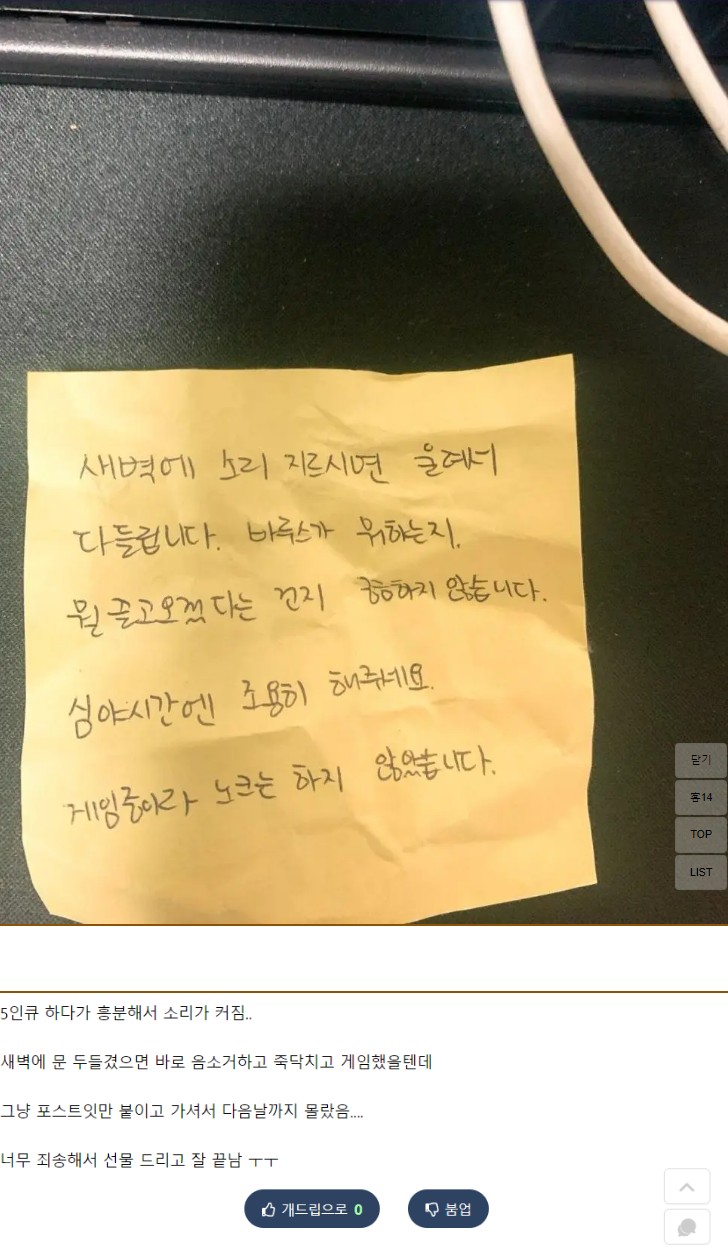 새벽에 소리 지르시면 울려서
다 들립니다. 바루스가 뭐하는지,
뭘 끌고오겠다는 건지 궁금하지 않습니다.
심야시간엔 조용히 해주세요.
게임중이라 노크는 하지 않았습니다.
닫기
홍14
TOP
LIST
5인큐 하다가 흥분해서 소리가 커짐..
새벽에 문 두들겼으면 바로 음소거하고 죽닥치고 게임했을텐데
그냥 포스트잇만 붙이고 가셔서 다음날까지 몰랐음....
너무 죄송해서 선물 드리고 잘 끝남 ㅜㅜ
개드립으로 0
붐업